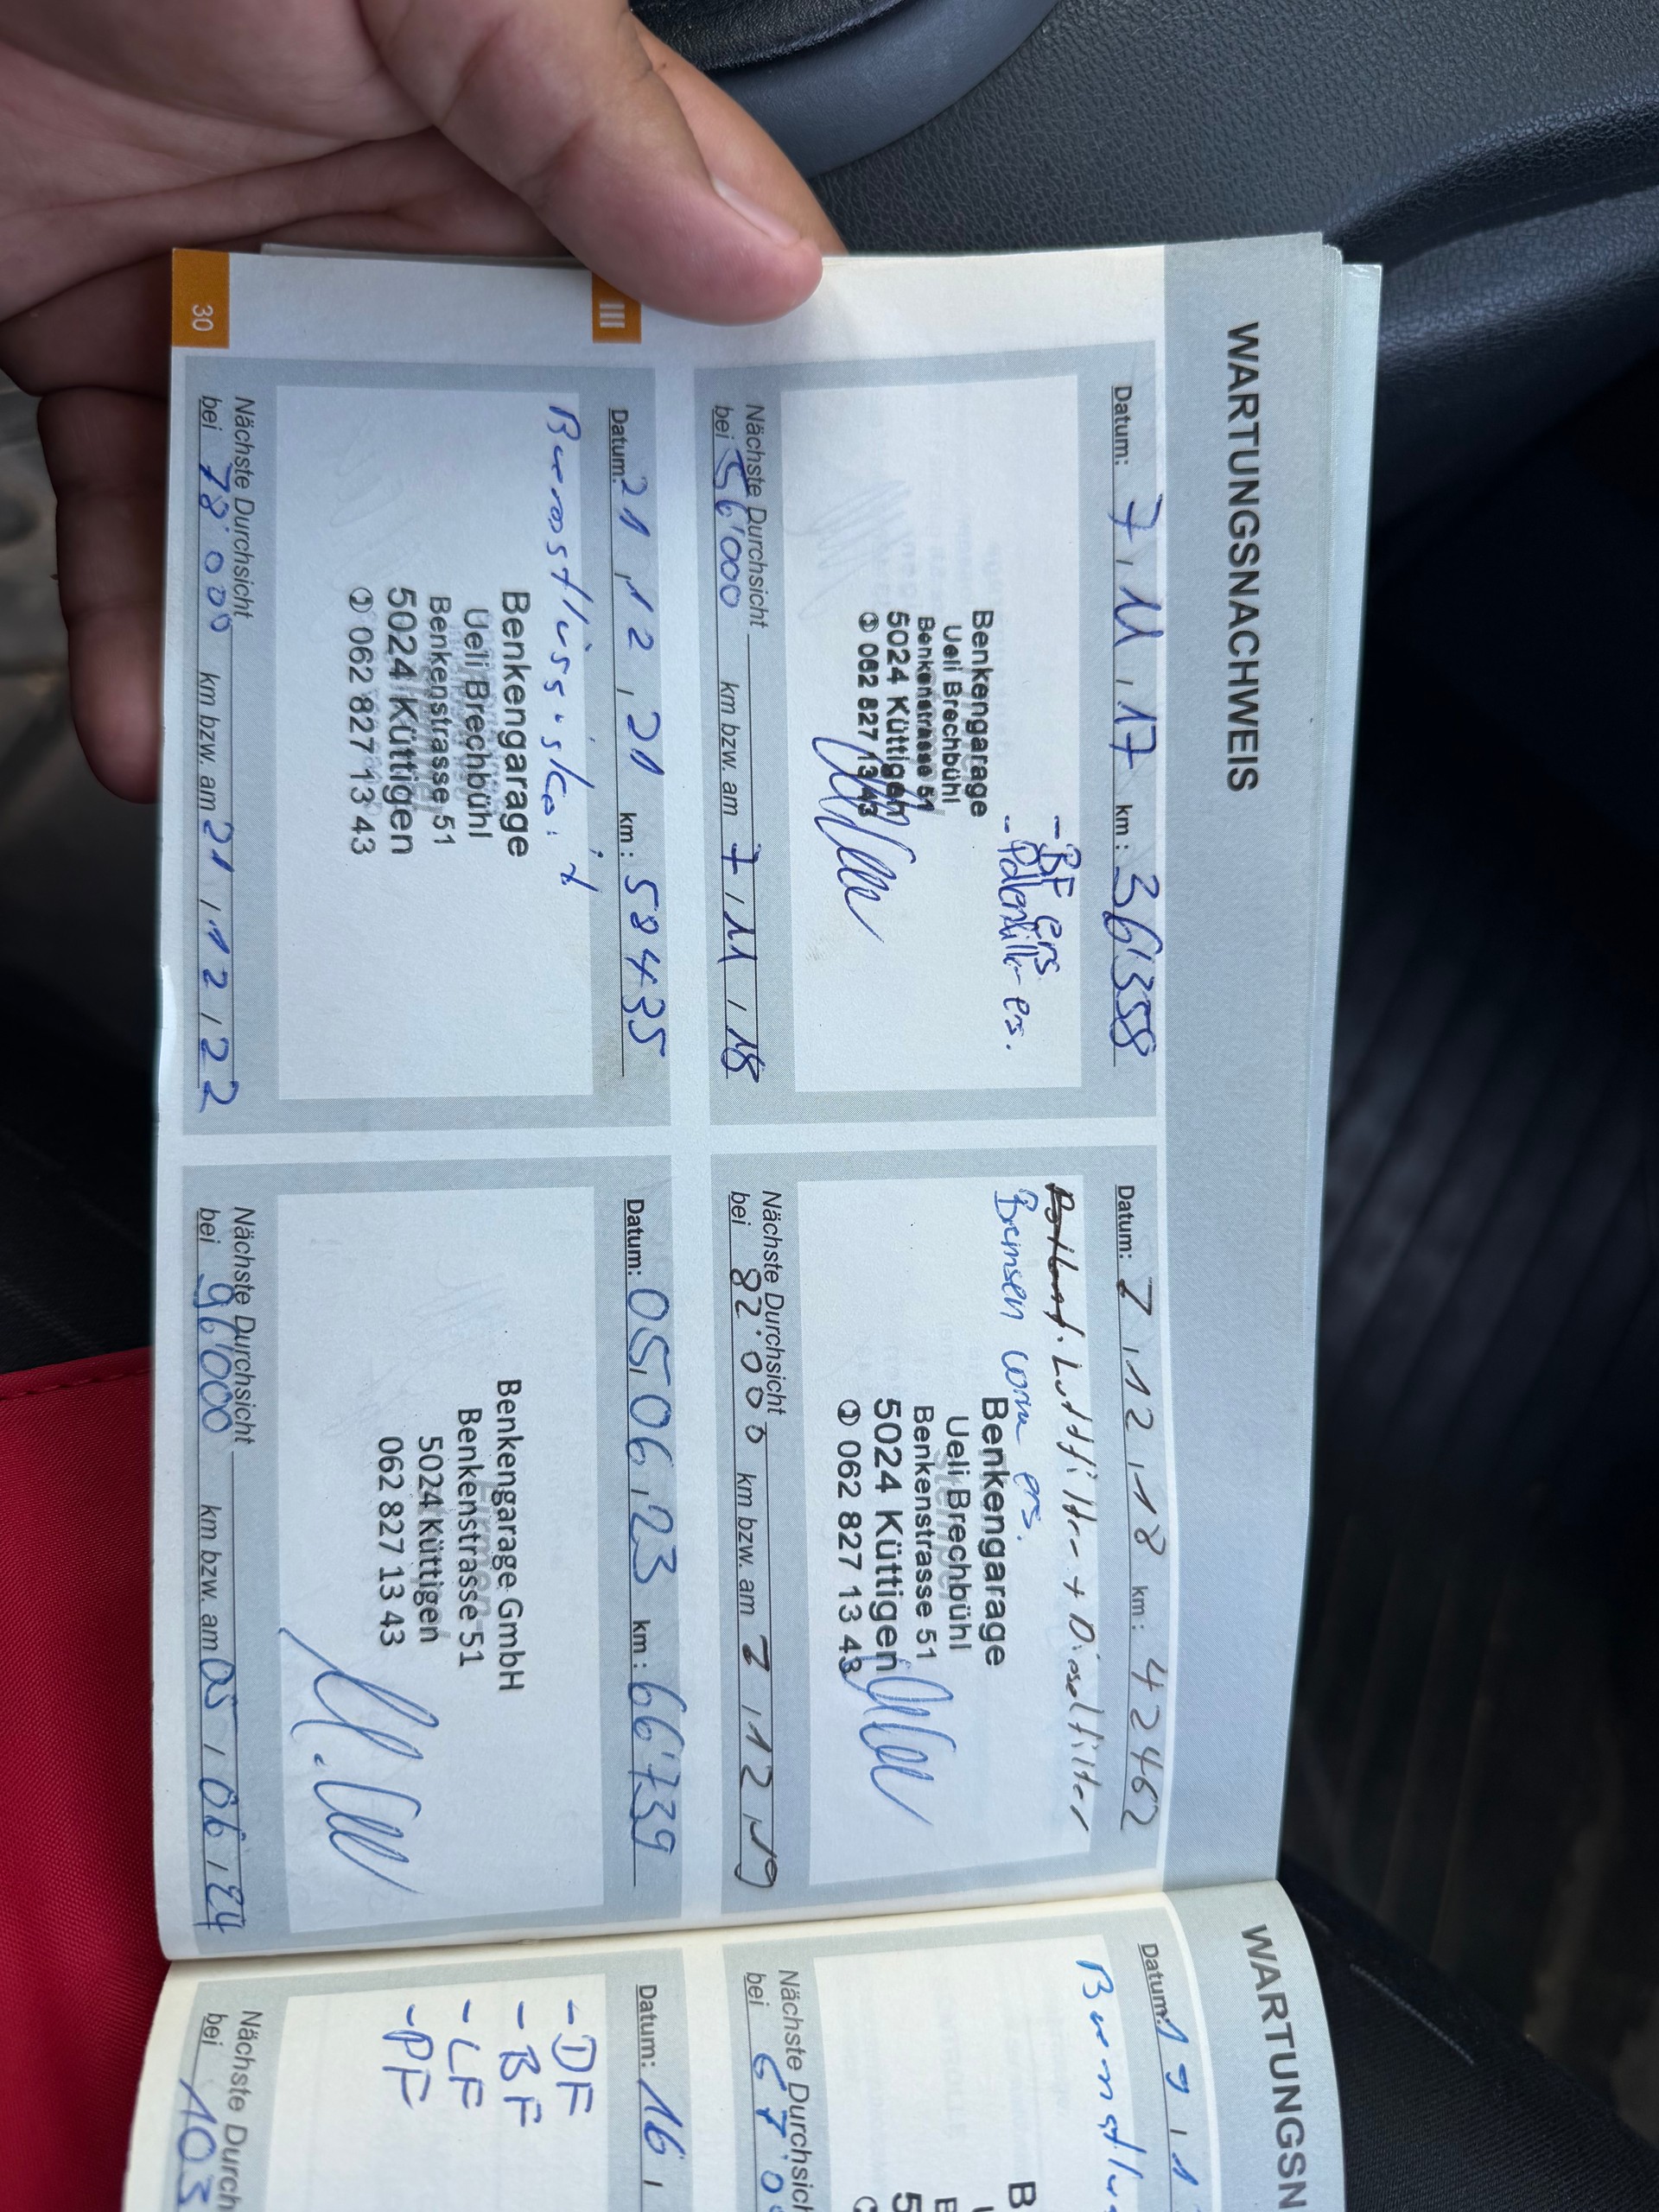 WARTUNGSNACHWEIS
Datum: 7.11.17 km: 36'358
- BF ers
- Pollenfilter ers.
Benkengarage
Ueli Brechbühl
Benkenstrasse 51
5024 Küttigen
062 827 13 43
Nächste Durchsicht
bei 56'000 km bzw. am 7.11.18
Datum: 7.12.18 km: 42462
Luftfilter + Dieselfilter
Bremsen vorne ers.
Benkengarage
Ueli Brechbühl
Benkenstrasse 51
5024 Küttigen
062 827 13 43
Nächste Durchsicht
bei 82'000 km bzw. am 7.12.19
III
Datum: 21.12.21 km: 58435
Bremsflüssigkeit
Benkengarage
Ueli Brechbühl
Benkenstrasse 51
5024 Küttigen
062 827 13 43
Nächste Durchsicht
bei 78'000 km bzw. am 21.12.22
Datum: 05.06.23 km: 66'739
Benkengarage GmbH
Benkenstrasse 51
5024 Küttigen
062 827 13 43
Nächste Durchsicht
bei 96'000 km bzw. am 05.06.24
30
WARTUNGSN
Datum: 19.1
B
Nächste Durchsich
bei 67'0
Datum: 16.
- DF
- BF
- LF
- PF
Nächste Durch
bei 103